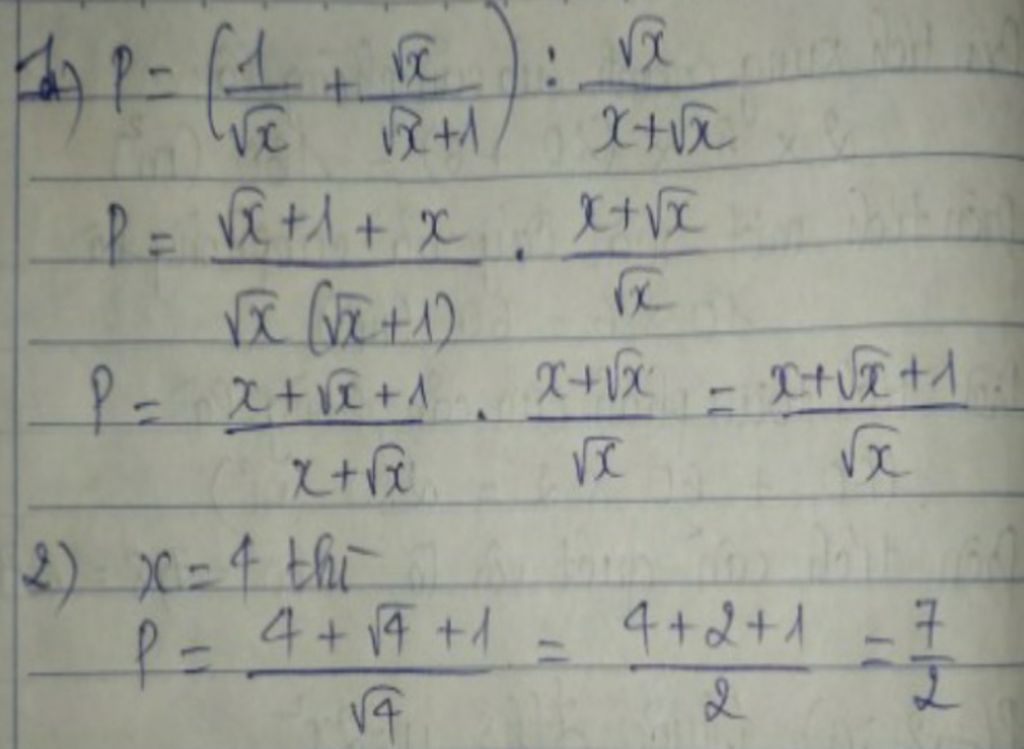 1) P = (1/√x + √x/(√x+1)) : √x/(x+√x)
P = (√x+1+x)/(√x(√x+1)) . (x+√x)/√x
P = (x+√x+1)/(x+√x) . (x+√x)/√x = (x+√x+1)/√x
2) x=4 thì
P = (4+√4+1)/√4 = (4+2+1)/2 = 7/2